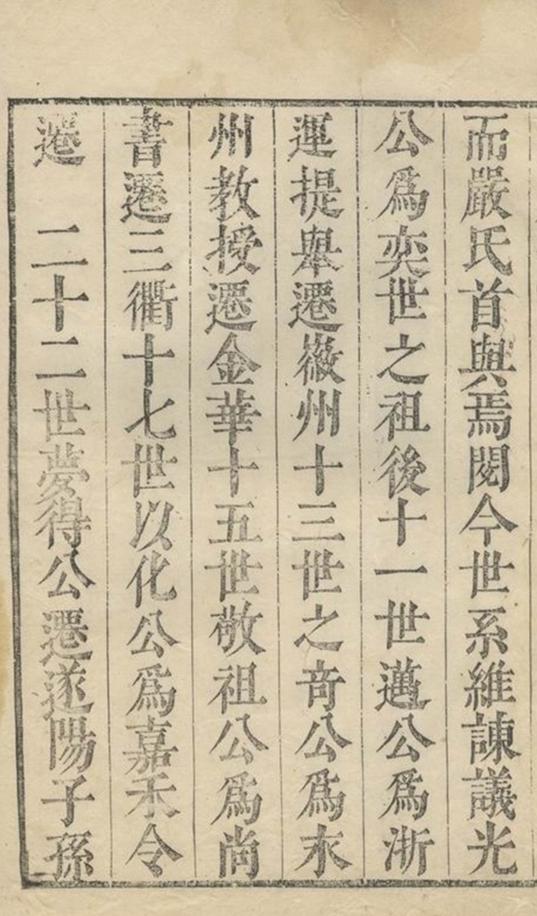 而嚴氏首與焉閱今世系維諫議光
公爲奕世之祖後十一世邁公爲浙
運提舉遷徽州十三世之奇公爲永
州教授遷金華十五世敬祖公爲尚
書遷三衢十七世以化公爲嘉禾令
遷　二十二世夢得公遷遂陽子孫